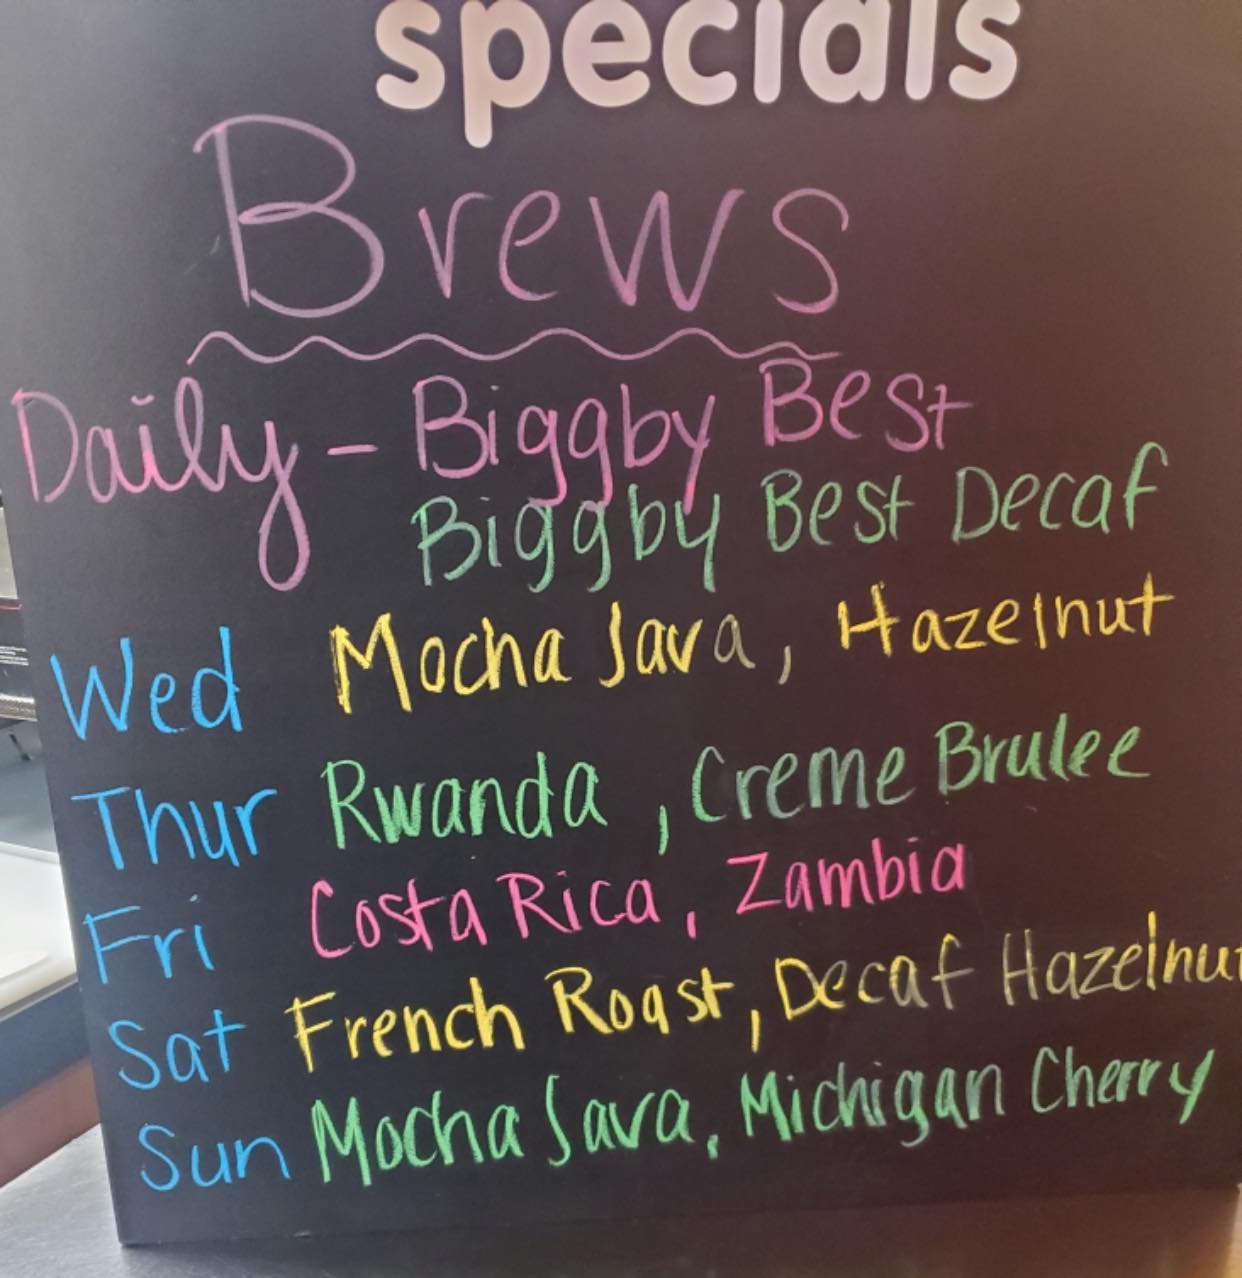 specials
Brews
Daily - Biggby Best
Biggby Best Decaf
Wed Mocha Java, Hazelnut
Thur Rwanda, Creme Brulee
Fri Costa Rica, Zambia
Sat French Roast, Decaf Hazelnut
Sun Mocha Java, Michigan Cherry